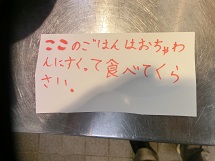 ここのごはんはおちゃわ
んにすくって食べてくら
さい。